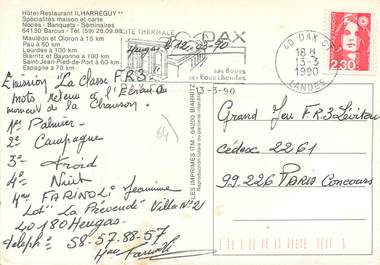 Hôtel-Restaurant ILHARRÉGUY **
Spécialités maison et carte
Noces - Banquets - Séminaires
64130 Barcus - Tél. (59) 28.09.88
Mauléon et Oloron à 15 km
Pau à 50 km
Lourdes à 100 km
Biarritz et Bayonne à 100 km
Saint-Jean-Pied-de-Port à 60 km
Espagne à 70 km
CITÉ THERMALE
40 DAX
Ses Boues
Ses Eaux chaudes
40 DAX
18 H
13-3
1990
LANDES
2,30
Heugas le 12.03.90
13-3-90
Emission "La Classe FR3"
mots retenu à l'Ecran au
moment de la Chanson.
1er Palmier
2e Campagne
3e Froid
4e Nuit
64
Mme FARINOLI Jeannine
Lot. La Prévenderie Villa N° 21
40180 Heugas
Teleph. 58-57-88-57
LES IMPRIMÉS ITM - 64200 BIARRITZ
Reproduction même partielle interdite
Grand Jeu FR3 Lévitan
Cédex 2261
99.226 PARIS Concours